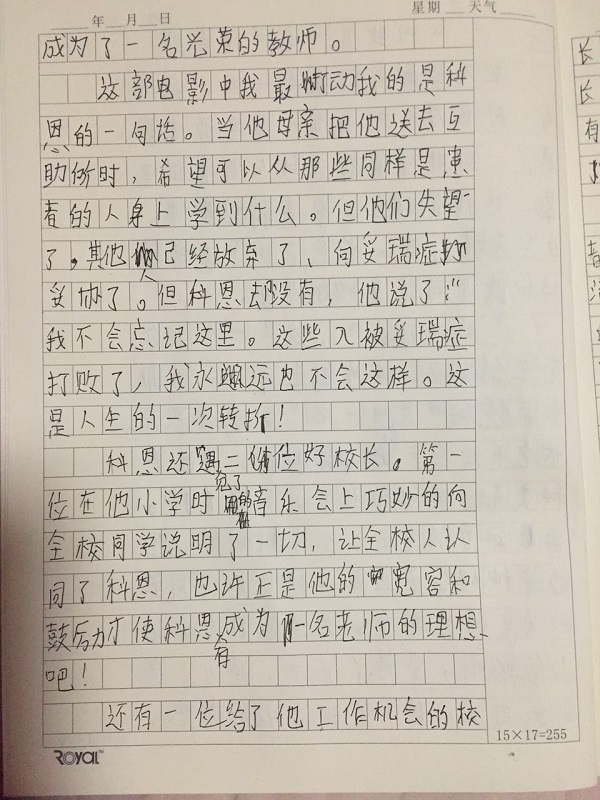 年 月 日 星期 天气
成为了一名光荣的教师。
这部电影中我最打动我的是科
恩的一句话。当他母亲把他送去互
助所时，希望可以从那些同样是患
者的人身上学到什么。但他们失望
了。其他人已经放弃了、向妥瑞症
妥协了。但科恩却没有，他说了："
我不会忘记这里。这些人被妥瑞症
打败了，我永远也不会这样。这
是人生的一次转折！
科恩还遇二位好校长。第一
位在他小学时音乐会上巧妙的向
全校同学说明了一切，让全校人认
同了科恩，也许正是他的宽容和
鼓励才使科恩有成为一名老师的理想
吧！
还有一位给了他工作机会的校
15×17=255
ROYAL
长
长
有